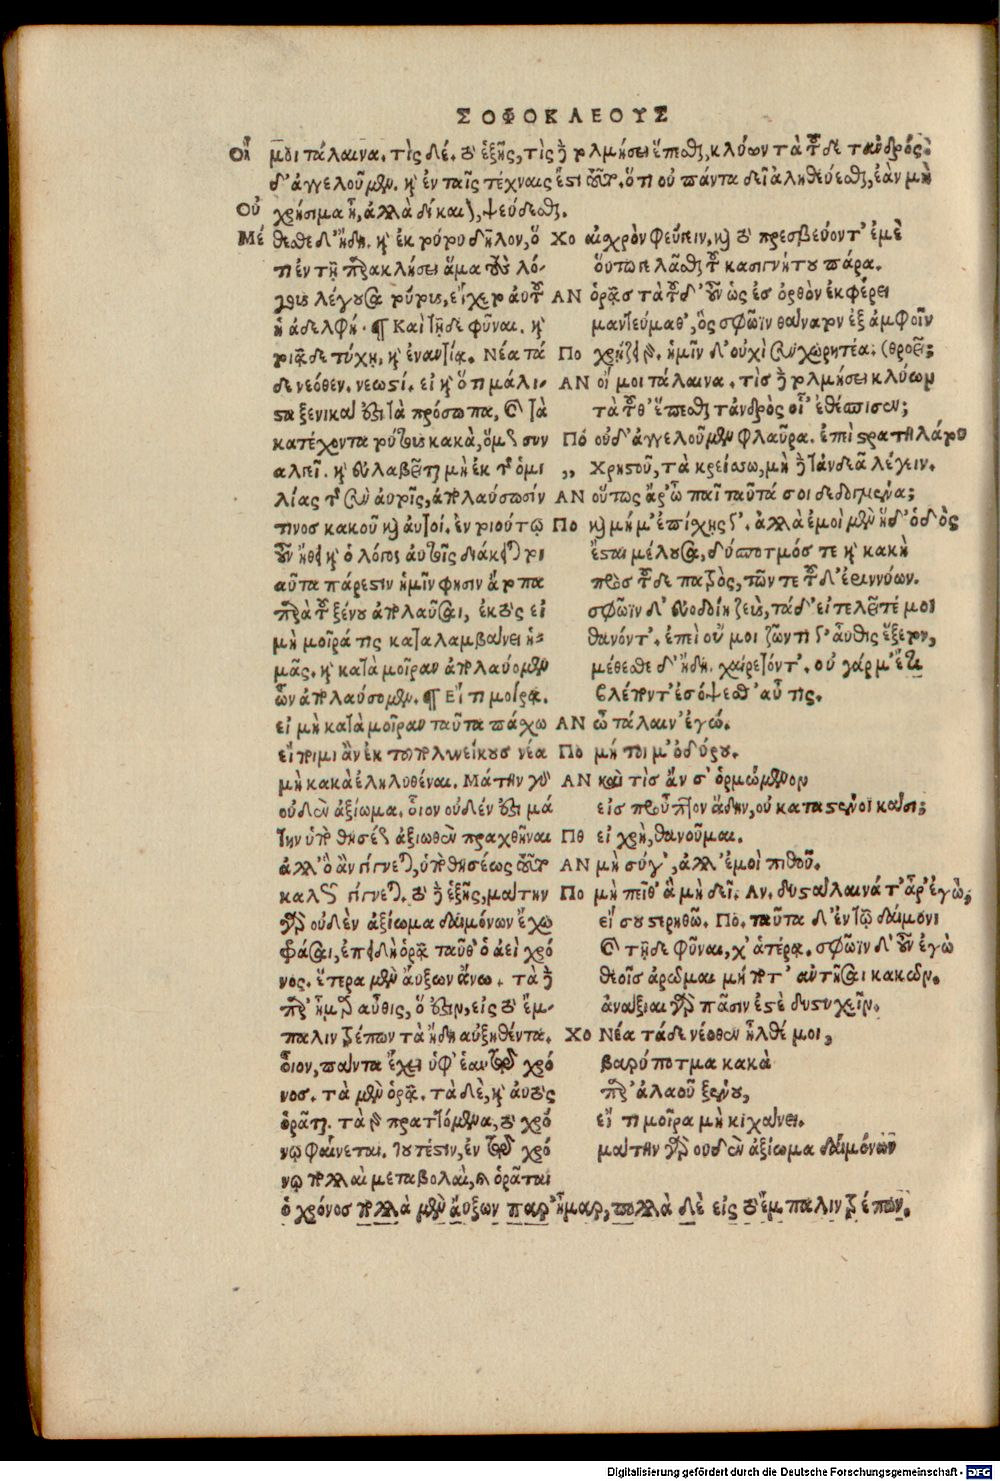 ΣΟΦΟΚΛΕΟΥΣ
Οἴ μοι τάλαινα. τὶς δέ. τὸ ἑξῆς, τὶς γὰρ τολμήσει ἕπεσθαι, κλύων τὰ τοῦδε τἀνδρός.
δ' ἀγγελοῦμεν. καὶ ἐν ταῖς τέχναις ἔστι τοῦτο. ὅτι οὐ πάντα δεῖ ἀληθεύεσθαι, ἐὰν μὴ
Οὐ χρήσιμα ᾖ, ἀλλὰ δίκαια, ψεύδεσθαι.
Μέ θεσθε δ' ἤδη. καὶ ἐκ τούτου δῆλον, ὅ
τι ἐν τῇ παρακλήσει ἅμα τοὺς λό-
γους λέγουσα τούτους, εἴχετο αὐτοῦ
ἡ ἀδελφή. ¶ Καὶ τῇδε φῦναι. καὶ
τοιᾷδε τύχῃ, καὶ ἐναντίᾳ. Νέα τά
δε νεόθεν. νεωστί. εἰ καὶ ὅτι μάλι-
στα ξενικαὶ ἐπὶ τὰ πρόσωπα, καὶ τὰ
κατέχοντα τούτους κακὰ, ὅμως συν
αλγεῖ. καὶ εὐλαβεῖται μὴ ἐκ τῆς ὁμι
λίας τῆς σὺν αὐτοῖς, ἀπολαύσωσίν
τινοσ κακοῦ καὶ αὐτοί. ἐν τοιούτῳ
οὖν ἤθει καὶ ὁ λόγος αὐτοῖς διάκειται
αὗτα πάρεστιν ἡμῖν φησιν ἄτοπα
παρὰ τοῦ ξένου ἀπολαῦσαι, ἐκτὸς εἰ
μὴ μοῖρά τις καταλαμβαίνει ἡ-
μᾶς. καὶ κατὰ μοῖραν ἀπολαύομεν
ὧν ἀπολαύσομεν. ¶ Εἴ τι μοῖρα.
εἰ μὴ κατὰ μοῖραν ταῦτα πάσχω
εἴποιμι ἂν ἐκ τοῦ πολυνείκουσ νέα
μὴ κακὰ ἐληλυθέναι. Μάτην γὰρ
οὐδὲν ἀξίωμα. οἷον οὐδέν ἐστι μά
την ὑποθήσεως ἀξιωθὲν πραχθῆναι
ἀλλ' ὃ ἂν γίγνεται, ὑποθήσέως τοῦτο
καλῶς γίγνεται. τὸ γὰρ ἑξῆς, μάτην
γὰρ οὐδὲν ἀξίωμα δαιμόνων ἔχω
φράσαι, ἐπειδὴ ὁρᾷ ταῦθ' ὁ ἀεὶ χρό
νος. ἕτερα μὲν αὔξων ἄνω. τὰ δὲ
παρ' ἦμαρ αὖθις, ὅ ἐστιν, εἰς τὸ ἔμ-
παλιν ῥέπων τὰ ἤδη αὐξηθέντα.
οἷον, πάντα ἔχει ὑφ' ἑαυτὸν χρό
νοσ. τὰ μὲν ὁρᾷ. τὰ δὲ, καὶ αὐτὸς
ὁρᾶται. τὰ γὰρ πραττόμενα, τῷ χρό
νῳ φαίνεται. Τουτέστιν, ἐν τῷ χρό
νῳ πολλαὶ μεταβολαὶ, καὶ ὁρᾶται
ΧΟ αἰσχρὸν φεύγειν. καὶ τὸ πρεσβεύοντ' ἐμὲ
οὕτω γελᾶσθαι τοῦ κασιγνήτου πάρα.
ΑΝ ὁρᾷσ τὰ τοῦδ' οὖν ὡς ἐσ ὀρθὸν ἐκφέρει
μαντεύμαθ', ὃς σφῷϊν θάνατον ἐξ ἀμφοῖν
ΠΟ χρῄζει γάρ. ἡμῖν δ' οὐχὶ συγχωρητέα. (θροεῖ;
ΑΝ οἴ μοι τάλαινα. τὶσ δὲ τολμήσει κλύων
τὰ τοῦδ' ἕπεσθαι τἀνδρὸς οἷ' ἐθέσπισεν;
ΠΟ οὐδ' ἀγγελοῦμεν φλαῦρα. ἐπεὶ στρατηλάτου
,, Χρηστοῦ, τὰ κρείσσω, μὴ δὲ τἀνδεᾶ λέγειν.
ΑΝ οὕτως ἄρ' ὦ παῖ ταῦτά σοι δεδογμένα;
ΠΟ καὶ μή μ' ἐπίσχῃς γ'. ἀλλὰ ἐμοὶ μὲν ἥδ' ὁδὸς
ἔσται μέλουσα, δύσποτμός τε καὶ κακὴ
πρὸς τοῦδε πατρὸς, τῶν τε τοῦδ' ἐριννύων.
σφῷϊν δ' εὐοδοίη ζεὺς, τάδ' εἰ τελεῖτέ μοι
θανόντ'. ἐπεὶ οὔ μοι ζῶντι γ' αὖθις ἕξετον,
μέθεσθε δ' ἤδη. χαίρετόντ'. οὐ γάρ μ' ἔτι
βλέποντ' ἐσόψεσθ' αὖτις.
ΑΝ ὦ τάλαιν' ἐγώ.
ΠΟ μή τοι μ' ὀδύρου.
ΑΝ καὶ τὶσ ἄν σ' ὁρμώμενον
εἰσ προῦπτον ᾅδην, οὐ καταστένοι κάσι;
ΠΟ εἰ χρὴ, θανοῦμαι.
ΑΝ μὴ σύγ', ἀλλ' ἐμοὶ πιθοῦ.
ΠΟ μὴ πεῖθ' ἃ μὴ δεῖ. Αν. δυσαύλαινά τ' ἄρ' ἐγὼ;
εἴ σου στερηθῶ. Πο. ταῦτα δ' ἐν τῷ δαίμονι
καὶ τῇδε φῦναι, χ' ἁτέρᾳ. σφῷϊν δ' οὖν ἐγὼ
θεοῖς ἀρῶμαι μή ποτ' αὐτῆσαι κακῶν.
ἀνάξιαι γὰρ πᾶσιν ἐστὲ δυστυχεῖν.
ΧΟ Νέα τάδε νέοθεν ἦλθέ μοι,
βαρύποτμα κακὰ
παρ' ἀλαοῦ ξένου,
εἴ τι μοῖρα μὴ κιχάνει.
μάτην γὰρ οὐδὲν ἀξίωμα δαιμόνων
ὁ χρόνοσ πολλὰ μὲν αὔξων παρ' ἦμαρ, πολλὰ δὲ εἰς τὸ ἔμπαλιν ῥέπων.
Digitalisierung gefördert durch die Deutsche Forschungsgemeinschaft - DFG